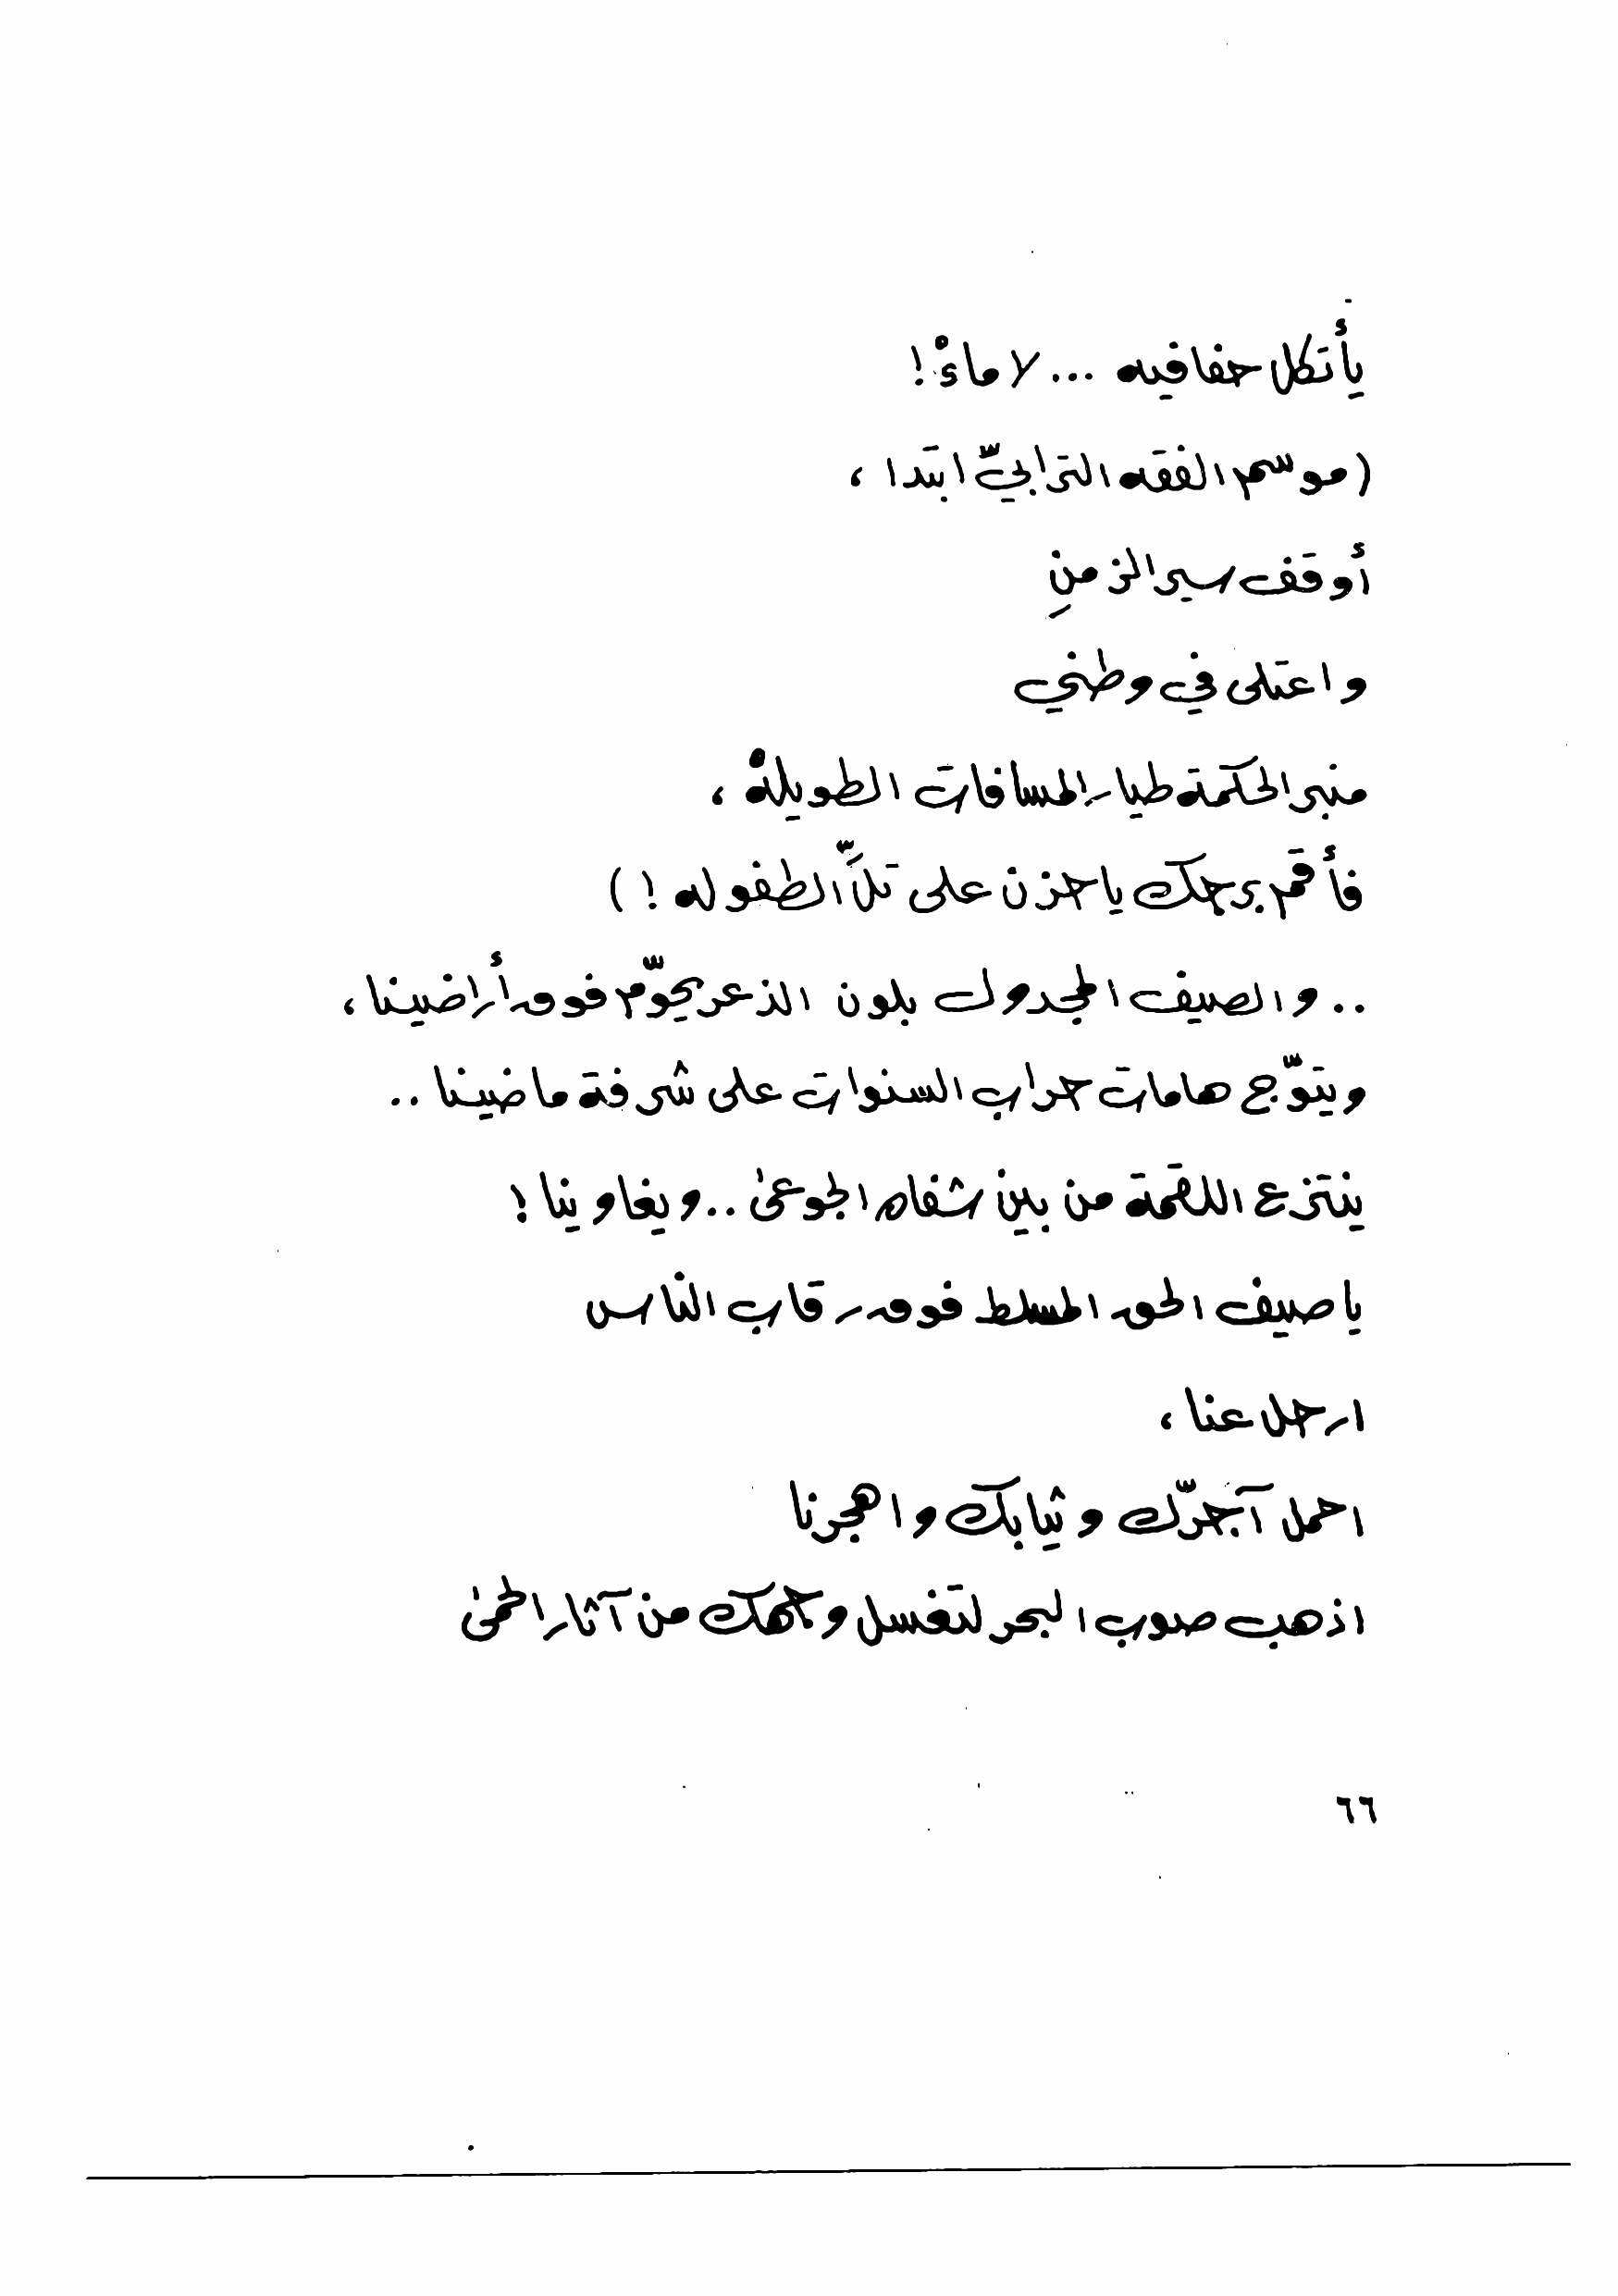 يأتكل حفافيه ... لا ماءْ !
( موسم الفقه الترابيّ ابتدا ،
أوقف سير الزمنِ
واعتلى في وطني
منبر الحكمة طيار المسافات الطويلهْ ،
فأقم برجك يا حزن على تلّ الطفوله ! )
.. والصيف المجدول بلون الذعر يحوّم فوق أراضينا ،
ويتوّج هامات حراب السنوات على شرفة ماضينا ..
ينتزع اللقمة من بين شفاه الجوعىٰ .. ويغاوينا !
يا صيف الحق المسلط فوق رقاب الناس
ارحل عنا ،
احمل آجرّك وثيابك واهجرنا
اذهب صوب البحر لتغسل وجهك من آثار الحمىٰ
٦٦